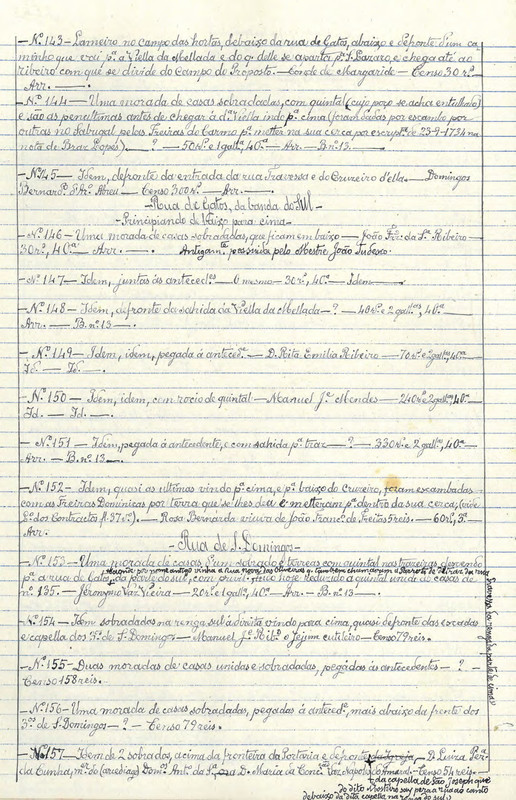 —N.º 143— Lameiro no campo das hortas, debaixo da rua de Gatos, abaixo e defronte d'um ca-
minho que vai p.ª a Viella da Mellada e do q. delle se aparta p.ª S. Lazaro, e chega até ao
ribeiro com que se divide do Campo do Proposto.— Conde de Margaride — Censo 30 r.s
Arr.—
—N.º 144— Uma morada de casas sobradadas, com quintal (cujo poço se acha entulhado)
e são as penultimas antes de chegar á d.ª Viella indo p.ª cima (foram dadas por escambo por
outras no Sabugal pelas Freiras do Carmo p.ª metter na sua cerca, por escript.ª de 23-9-1734 na
nota de Braz Lopes). — ? — 50 r.s e 1 gall.ª, 40.ª — Arr.— B. n.º 13.—
—N.º 145— Idem, defronte da entrada da rua Travessa e do Cruzeiro d'ella. — Domingos
Bernard.º d'Ar.º Abreu — Censo 300 r.s — Arr.—
—Rua de Gatos, da banda do Sul—
—Principiando de baixo para cima—
—N.º 146— Uma morada de casas sobradadas, que ficam em baixo — João Frz. da S.ª Ribeiro
30 r.s, 40.ª Arr.— Antigam.te possuida pelo Mestre João Tudesco.
—N.º 147— Idem, juntas ás anteced.es — O mesmo — 30 r.s, 40.ª — Idem —
—N.º 148— Idem, defronte da sahida da Viella da Mellada — ? — 40 r.s e 2 gall.as, 40.ª
Arr.— B. n.º 13—.
—N.º 149— Idem, idem, pegada á anteced.e — D. Rita Emilia Ribeiro — 70 r.s e 2 gall.as, 40.ª
Id.— Id.—.
—N.º 150— Idem, idem, com rocio de quintal — Manuel J.e Mendes — 240 r.s e 2 gall.as, 40.ª
Id.— Id.—.
—N.º 151— Idem, pegada á antecedente, e com sahida p.ª traz — ? — 330 r.s e 2 gall.as, 40.ª
Arr.— B. n.º 13—.
—N.º 152— Idem, quasi as ultimas vindo p.ª cima, e p.ª baixo do cruzeiro, foram escambadas
com as Freiras Dominicas por terra que se lhes deu e metteram p.ª dentro da sua cerca, (vide
L.º dos Contractos fl. 57 v.º).— Rosa Bernarda viuva de João Franc.º de Freitas 5 reis.— 60 r.s, 3.ª
Arr.—
—Rua de S. Domingos—
—N.º 153— Uma morada de casas, d'um sobrado e terreas com quintal nas trazeiras, devendo
p.ª a rua de Gatos, da parte do sul,
n.º 135.— Jeronymo Vaz Vieira — 20 r.s e 1 gall.ª, 40.ª — Arr.— B. n.º 13—
—N.º 154— Idem sobradadas na renga sul á direita vindo para cima, quasi defronte das escadas
e capella dos 3.os de S. Domingos — Manuel J.e Rib.º o Jejum cutileiro — Censo 79 reis.—
—N.º 155— Duas moradas de casas unidas e sobradadas, pegadas ás antecedentes — ? —
Censo 158 reis.—
—N.º 156— Uma morada de casas sobradadas, pegadas á anteced.e, mais abaixo da frente dos
3.os de S. Domingos — ? — Censo 79 reis.—
—N.º 157— Idem de 2 sobrados, acima da fronteira da Portaria e defronte da Igreja — D. Luiza Per.ª
da Cunha, Dom.os Ant.º da S.ª D. Maria da Conc.ªm Vaz Napoles do Amaral.— Censo 54 reis.—
da capella de São Joseph que
debaixo da dita capella na renga do sul)